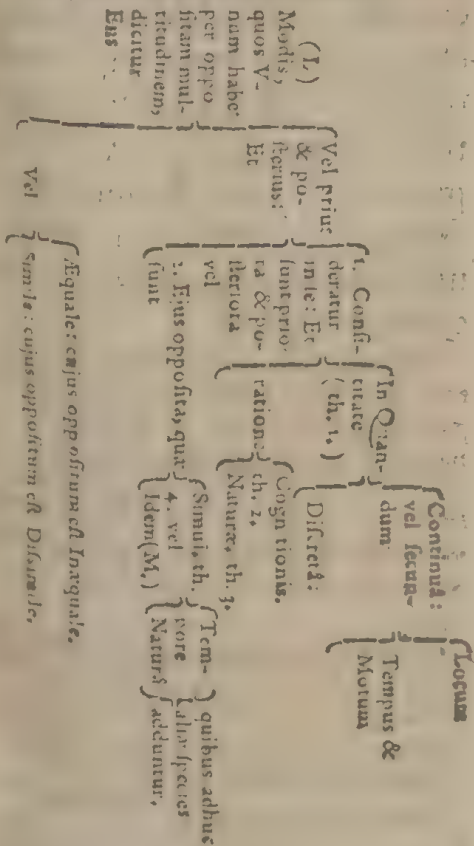 (L.)
Modis,
quos V-
num habe
per oppo
sitam mul-
titudinem,
dicitur
Ens
Vel prius
& po-
sterius:
Et
1. Consi-
deratur
in se: Et
sunt prio
ra & po-
steriora
vel
In Quan-
titate
(th. 1.)
Continuâ:
vel secun-
dum
Locum
Tempus &
Motum
Discretâ:
ratione
Cognitionis,
th. 2.
Naturæ, th. 3.
2. Ejus opposita, quæ
sunt
Simul, th.
4. vel
Idem (M.)
Tem-
pore
Naturâ
quibus adhuc
aliæ species
adduntur.
Vel
Æquale: cujus oppositum est Inæquale.
Simile: cujus oppositum est Dissimile.